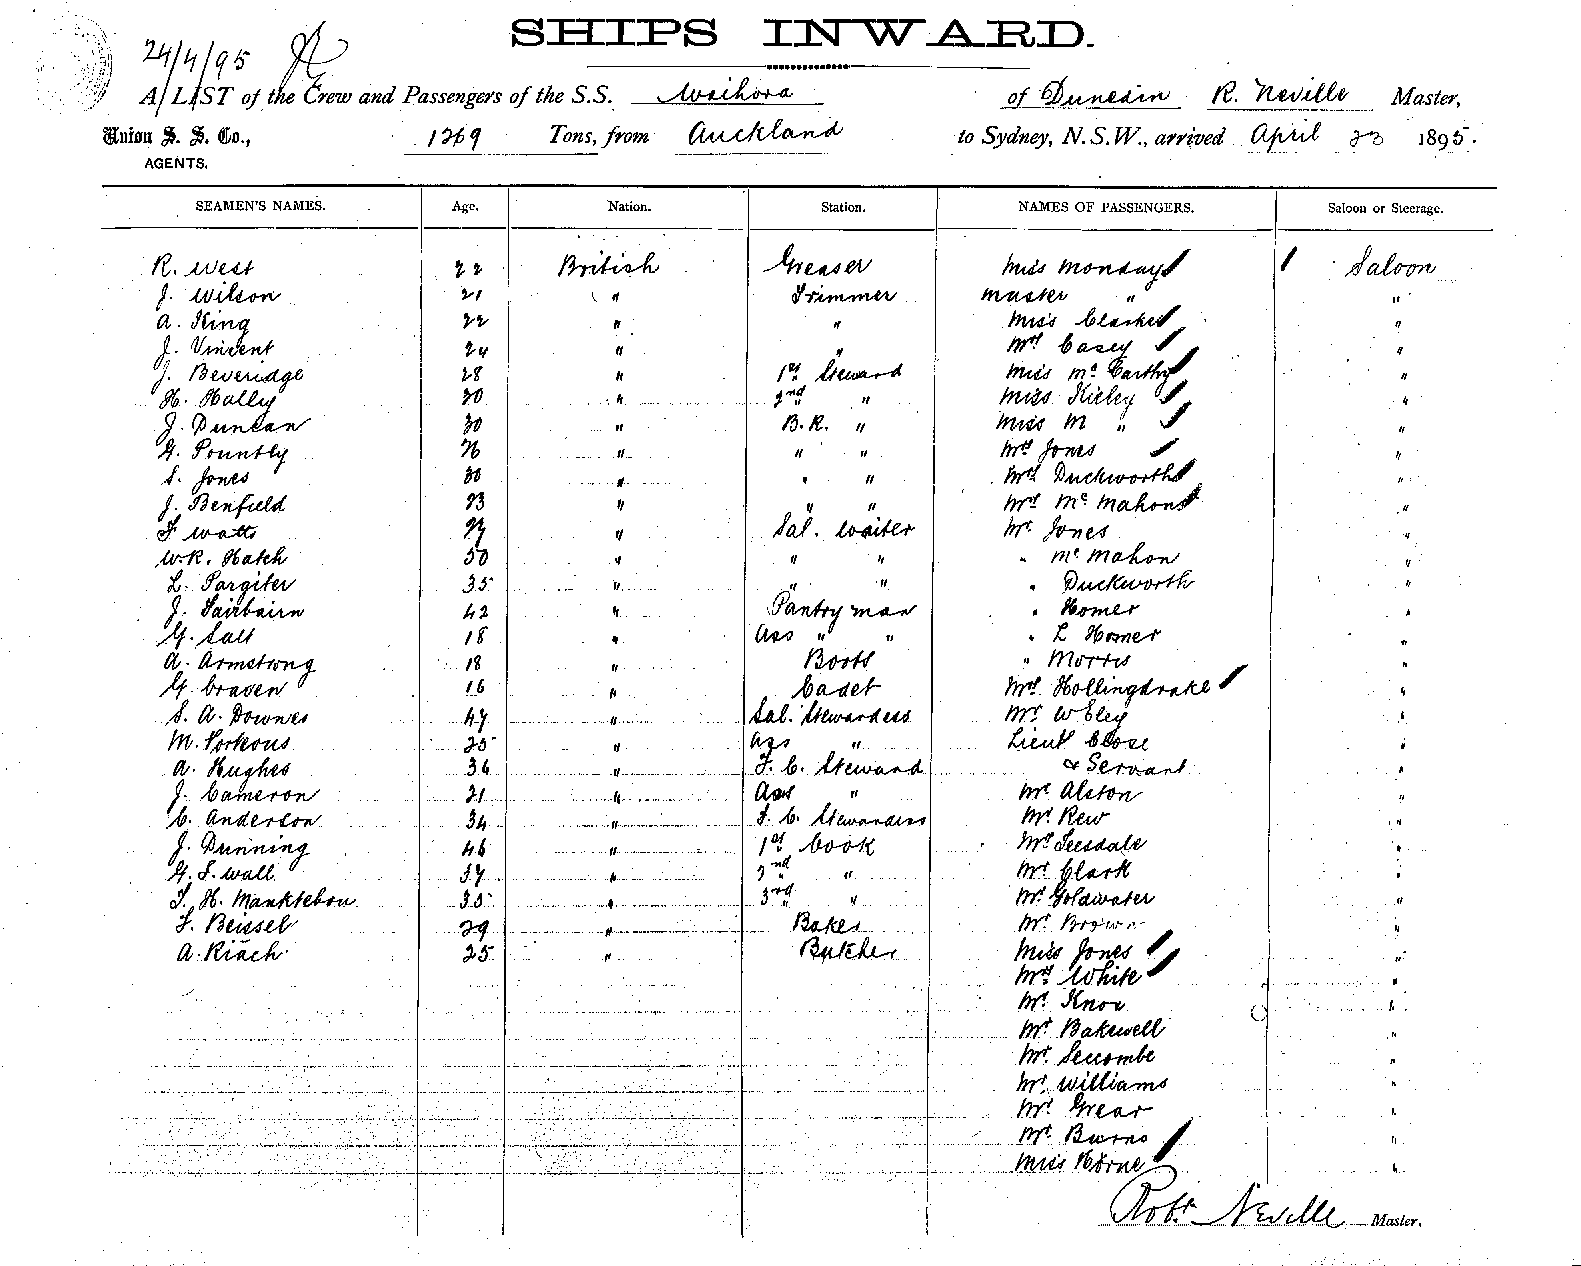 SHIPS INWARD.
24/4/95
A LIST of the Crew and Passengers of the S.S. Waihora of Dunedin R. Neville Master,
Union S. S. Co., 1269 Tons, from Auckland to Sydney, N.S.W., arrived April 23 1895.
AGENTS.
SEAMEN'S NAMES. Age. Nation. Station. NAMES OF PASSENGERS. Saloon or Steerage.
R. West 22 British Greaser Miss Monday 1 Saloon
J. Wilson 21 " Trimmer Master " "
A. King 22 " " Miss Clarke "
J. Vincent 24 " " Mrs Casey "
J. Beveridge 28 " 1st Steward Miss McCarthy "
H. Hally 30 " 2nd " Miss Kieley "
J. Duncan 30 " B.R. " Miss M " "
G. Pountly 26 " " " Mrs Jones "
S. Jones 30 " " " Mrs Duckworth "
J. Benfield 23 " " " Mrs McMahon "
F Watts " Sal. Waiter Mr Jones "
W.R. Hatch 50 " " " " McMahon "
L. Pargiter 35 " " " " Duckworth "
J. Fairbairn 42 " Pantryman " Homer "
G. Salt 18 " Ass " " " L Homer "
A. Armstrong 18 " Boots " Morris "
G. Craven 16 " Cadet Mrs Hollingdrake "
S. A. Downes 47 " Sal. Stewardess Mr W Eley "
M. Porkous 25 " Ass " Lieut Close "
A. Hughes 36 " F. C. Steward & Servant "
J. Cameron 21 " Asst " Mr Alston "
C. Anderson 34 " F. C. Stewardess Mr Rew "
J. Dunning 46 " 1st Cook Mr Teesdale "
G. S. Wall 37 " 2nd " Mr Clark "
T. H. Manktebon 35 " 3rd " Mr Goldwater "
F. Beissel 29 " Baker Mr Brown "
A. Riach 25 " Butcher Miss Jones "
Mrs White "
Mr Knox "
Mr Bakewell "
Mr Seccombe "
Mr Williams "
Mr Grear "
Mr Burns "
Miss Horne "
Robt Neville Master.